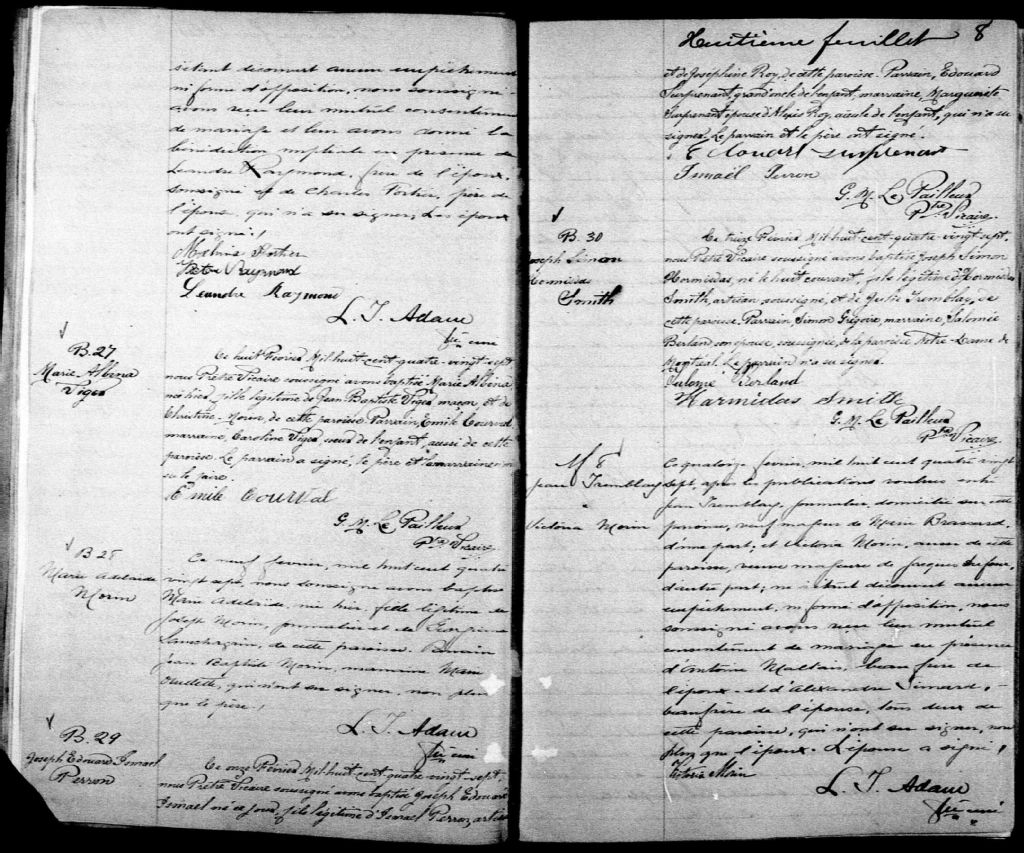 s'étant découvert aucun empêchement
ni forme d'opposition, nous soussigné
avons reçu leur mutuel consentement
de mariage et leur avons donné la
bénédiction nuptiale en présence de
Léandre Raymond, frère de l'époux,
soussigné et de Charles Fortier, père de
l'épouse, qui n'a su signer, Les époux
ont signé.
Malvina Fortier
Victor Raymond
Leandre Raymond
L. J. Adam
ptre curé
B. 27
Marie Albina
Viger
Ce huit Février Mil huit cent quatre-vingt-sept
nous Prêtre Vicaire soussigné avons baptisé Marie Albina
née hier, fille légitime de Jean Baptiste Viger maçon, et de
Christine Morin, de cette paroisse. Parrain, Emile Courval
marraine, Caroline Viger, sœur de l'enfant, aussi de cette
paroisse. Le parrain a signé, le père et la marraine n'ont
su le faire.
Emile Courval
G. M. Le Pailleur
Ptre Vicaire
B 28
Marie Adelaide
Morin
Ce neuf fevrier, mil huit cent quatre
vingt sept, nous soussigné avons baptisé
Marie Adelaïde, née hier, fille légitime de
Joseph Morin, journalier et de
de cette paroisse. Parrain
Jean Baptiste Morin, marraine Marie
Ouellette, qui n'ont su signer, non plus
que le père.
L. J. Adam
ptre curé
B. 29
Joseph Edouard Ismael
Perron
Ce onze Février Mil huit cent-quatre vingt-sept,
nous Prêtre Vicaire soussigné avons baptisé Joseph Edouard
Ismael né ce jour, fils légitime d'Ismael Perron,
Huitième feuillet 8
et de Joséphine Roy, de cette paroisse. Parrain, Edouard
Surprenant, grand oncle de l'enfant, marraine, Marguerite
Surprenant épouse d'Alexis Roy, aieule de l'enfant, qui n'a su
signer. Le parrain et le père ont signé.
Edouart surprenant
Ismaël Perron
G. M. Le Pailleur
Ptre Vicaire
B. 30
Joseph Simon
Hormisdas
Smith
Ce treize Février Mil huit cent-quatre-vingt sept,
nous Prêtre Vicaire soussigné avons baptisé Joseph Simon
Hormisdas, né le huit courant, fils légitime d'Hormisdas
Smith, artisan soussigné, et de Tremblay, de
cette paroisse. Parrain, Simon Grégoire, marraine, Salomée
Berland, son épouse, soussignée, de la paroisse Notre-Dame de
Montréal. Le parrain n'a su signer.
Salome Berland
Harmidas Smith
G. M. Le Pailleur
Ptre Vicaire
M 8
Jean Tremblay
Victoria Morin
Ce quatorze fevrier, mil huit cent quatre vingt
sept, après les publications voulues entre
Jean Tremblay, journalier, domicilié sur cette
paroisse, veuf majeur de Marie Brossard,
d'une part; et Victoria Morin, aussi de cette
paroisse, veuve majeure de Jacques Dufour,
d'autre part; ne s'étant découvert aucun
empêchement, ni forme d'opposition, nous
soussigné avons reçu leur mutuel
consentement de mariage en présence
d'Antoine Maltais, beau frère de
l'époux et d'Alexandre Simard,
beau frère de l'épouse, tous deux de
cette paroisse, qui n'ont su signer, non
plus que l'époux. L'épouse a signé.
Victoria Morin
L. J. Adam
ptre curé